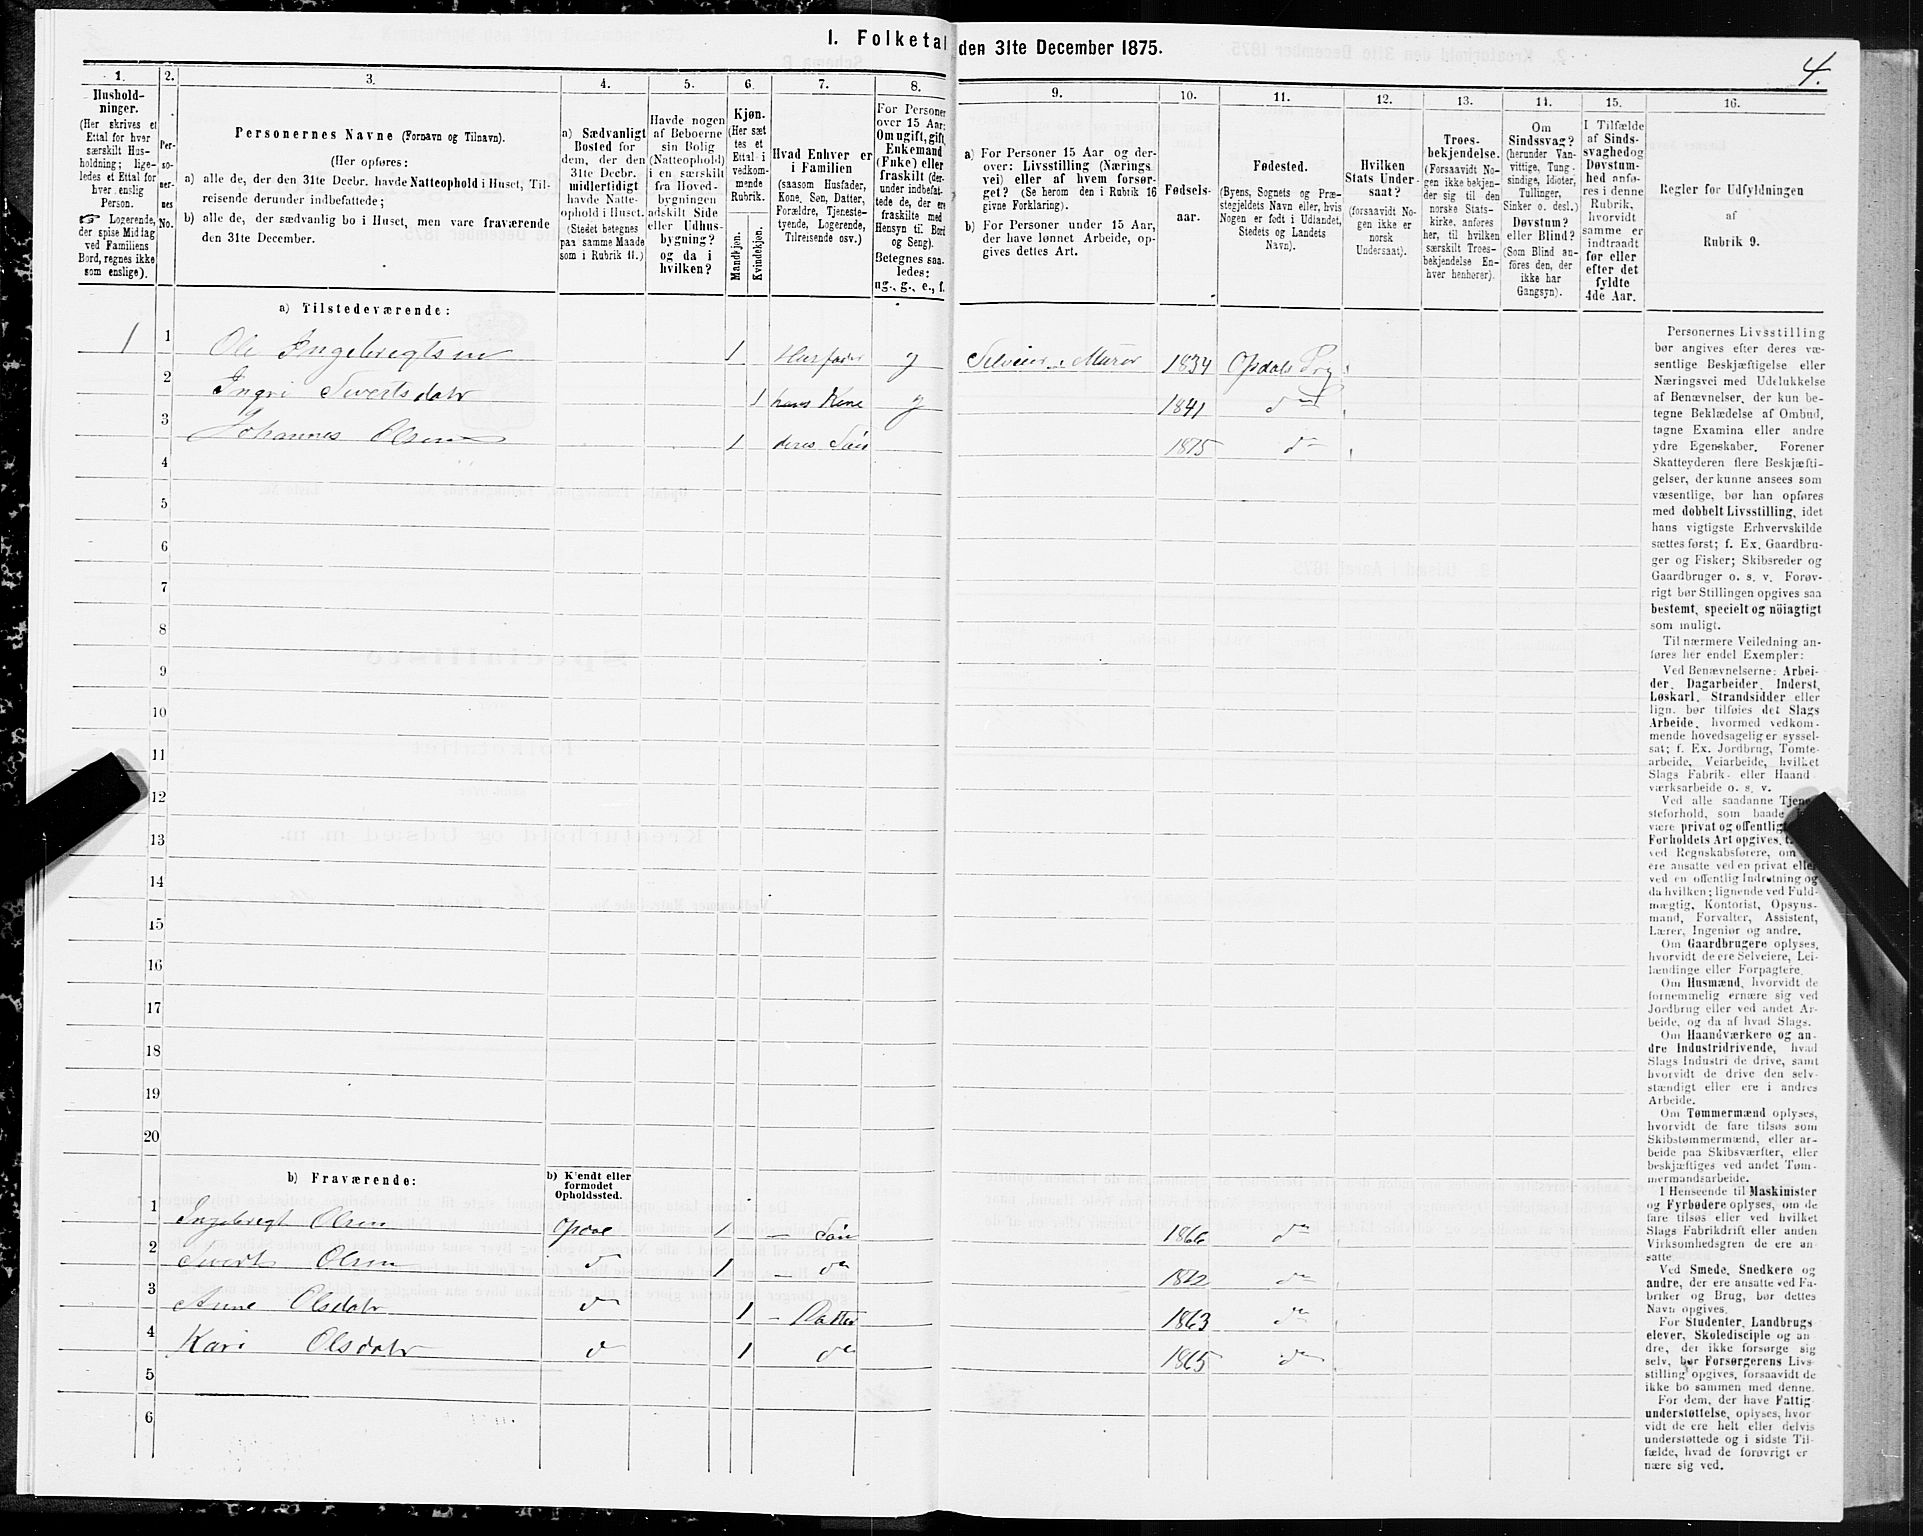 I. Folketal den 31te December 1875.
4.
1.
Hushold-
ninger.
(Her skrives et
Ettal for hver
særskilt Hus-
holdning; lige-
ledes et Ettal for
hver enslig
Person.
Logerende,
der spise Middag
ved Familiens
Bord, regnes ikke
som enslige).
2.
Per-
so-
ner-
nes
No.
3.
Personernes Navne (Fornavn og Tilnavn).
(Her opføres:
a) alle de, der den 31te Decbr. havde Natteophold i Huset, Til-
reisende derunder indbefattede;
b) alle de, der sædvanlig bo i Huset, men vare fraværende
den 31te December.
4.
a) Sædvanligt
Bosted for
dem, der den
31te Decbr.
midlertidigt
havde Natte-
ophold i Huset.
(Stedet betegnes
paa samme Maade
som i Rubrik 11.)
5.
Havde nogen
af Beboerne
sin Bolig
(Natteophold)
i en særskilt
fra Hoved-
bygningen
adskilt Side
eller Udhus-
bygning?
og da i
hvilken?
6.
Kjøn.
(Her sæt
tes et
Ettal i
vedkom-
mende
Rubrik.
Mandkjøn.
Kvindekjøn.
7.
Hvad Enhver er
i Familien
(saasom Husfader,
Kone, Søn, Datter,
Forældre, Tjeneste-
tyende, Logerende,
Tilreisende osv.)
8.
For Personer
over 15 Aar:
Om ugift, gift,
Enkemand
(Enke) eller
fraskilt (der-
under indbefat-
tede de, der ere
fraskilte med
Hensyn til Bord
og Seng).
Betegnes saa-
ledes:
ug., g., e., f.
9.
a) For Personer 15 Aar og der-
over: Livsstilling (Nærings
vei) eller af hvem forsør-
get? (Se herom den i Rubrik 16
givne Forklaring).
b) For Personer under 15 Aar,
der have lønnet Arbeide, op-
gives dettes Art.
10.
Fødsels-
aar.
11.
Fødested.
(Byens, Sognets og Præ-
stegjeldets Navn eller, hvis
Nogen er født i Udlandet,
Stedets og Landets
Navn).
12.
Hvilken
Stats Under-
saat?
(forsaavidt No-
gen ikke er
norsk
Undersaat).
13.
Troes-
bekjendelse.
(Forsaavidt No-
gen ikke bekjen-
der sig til den
norske Stats-
kirke, anføres
her, til hvilken
særskilt Troes-
bekjendelse En-
hver henhører).
14.
Om
Sindssvag?
(herunder Van-
vittige, Tung-
sindige, Idioter,
Tullinger,
Sinker o. desl.)
Døvstum?
eller Blind?
(Som Blind an-
føres den, der
ikke har
Gangsyn).
15.
I Tilfælde
af Sinds-
svaghed og
Døvstum-
hed anfø-
res i denne
Rubrik,
hvorvidt
samme er
indtraadt
før eller
efter det
fyldte
4de Aar.
16.
Regler for Udfyldningen
af
Rubrik 9.
a) Tilstedeværende:
1 1 Ole Ingebregtsen 1 Husfader g Selveier Murer 1834 Opdals Prg.
2 Ingri Sivertsdatr 1 hans Kone g 1841 do
3 Johannes Olsen 1 deres Søn 1875 do
4
5
6
7
8
9
10
11
12
13
14
15
16
17
18
19
20
b) Fraværende:
b) Kjendt eller
formodet
Opholdssted.
1 Ingebregt Olsen Opdal 1 — Søn 1866 do
2 Sivert Olsen do 1 — do 1872 do
3 Anne Olsdatr do 1 — Datter 1863 do
4 Kari Olsdatr do 1 do 1865 do
5
6
Personernes Livsstilling
bør angives efter deres væ-
sentlige Beskjæftigelse eller
Næringsvei med Udelukkelse
af Benævnelser, der kun be-
tegne Beklædelse af Ombud,
tagne Examina eller andre
ydre Egenskaber. Forener
Skatteyderen flere Beskjæfti-
gelser, der kunne ansees som
væsentlige, bør han opføres
med dobbelt Livsstilling, idet
hans vigtigste Erhvervskilde
sættes først; f. Ex. Gaardbru-
ger og Fisker; Skibsreder og
Gaardbruger o. s. v. Forøv-
rigt bør Stillingen opgives saa
bestemt, specielt og nöiagtigt
som muligt.
Til nærmere Veiledning an-
føres her endel Exempler:
Ved Benævnelserne: Arbei-
der, Dagarbeider, Inderst,
Løskarl, Strandsidder eller
lign. bør tilføies det Slags
Arbeide, hvormed vedkom-
mende hovedsagelig er syssel-
sat; f. Ex. Jordbrug, Tomte-
arbeide, Veiarbeide, hvilket
Slags Fabrik- eller Haand
værksarbeide o. s. v.
Ved alle saadanne Tjene-
steforhold, som baade
være privat og offentlig
Forholdets Art opgives,
ved Regnskabsførere, om
ere ansatte ved en privat eller
ved en offentlig Indretning og
da hvilken; lignende ved Fuld-
mægtig, Kontorist, Opsyns-
mand, Forvalter, Assistent,
Lærer, Ingeniør og andre.
Om Gaardbrugere oplyses,
hvorvidt de ere Selveiere, Lei-
lændinge eller Forpagtere.
Om Husmænd, hvorvidt de
fornemmelig ernære sig ved
Jordbrug eller ved andet Ar-
beide, og da af hvad Slags.
Om Haandværkere og an-
dre Industridrivende, hvad
Slags Industri de drive, samt
hvorvidt de drive den selv-
stændigt eller ere i andres
Arbeide.
Om Tømmermænd oplyses,
hvorvidt de fare tilsøs som
Skibstømmermænd, eller ar-
beide paa Skibsværfter, eller
beskjæftiges ved andet Tøm-
mermandsarbeide.
I Henseende til Maskinister
og Fyrbødere oplyses, om de
fare tilsøs eller ved hvilket
Slags Fabrikdrift eller anden
Virksomhedsgren de ere an-
satte.
Ved Smede, Snedkere og
andre, der ere ansatte ved Fa-
briker og Brug, bør dettes
Navn opgives.
For Studenter, Landbrugs
elever, Skoledisciple og an
dre, der ikke forsørge sig
selv, bør Forsørgerens Livs-
stilling opgives, forsaavidt de
ikke bo sammen med denne.
For dem, der have Fattig-
understøttelse, oplyses, hvor
vidt de ere helt eller delvis
understøttede og i sidste Til-
fælde, hvad de forøvrigt er
nære sig ved.